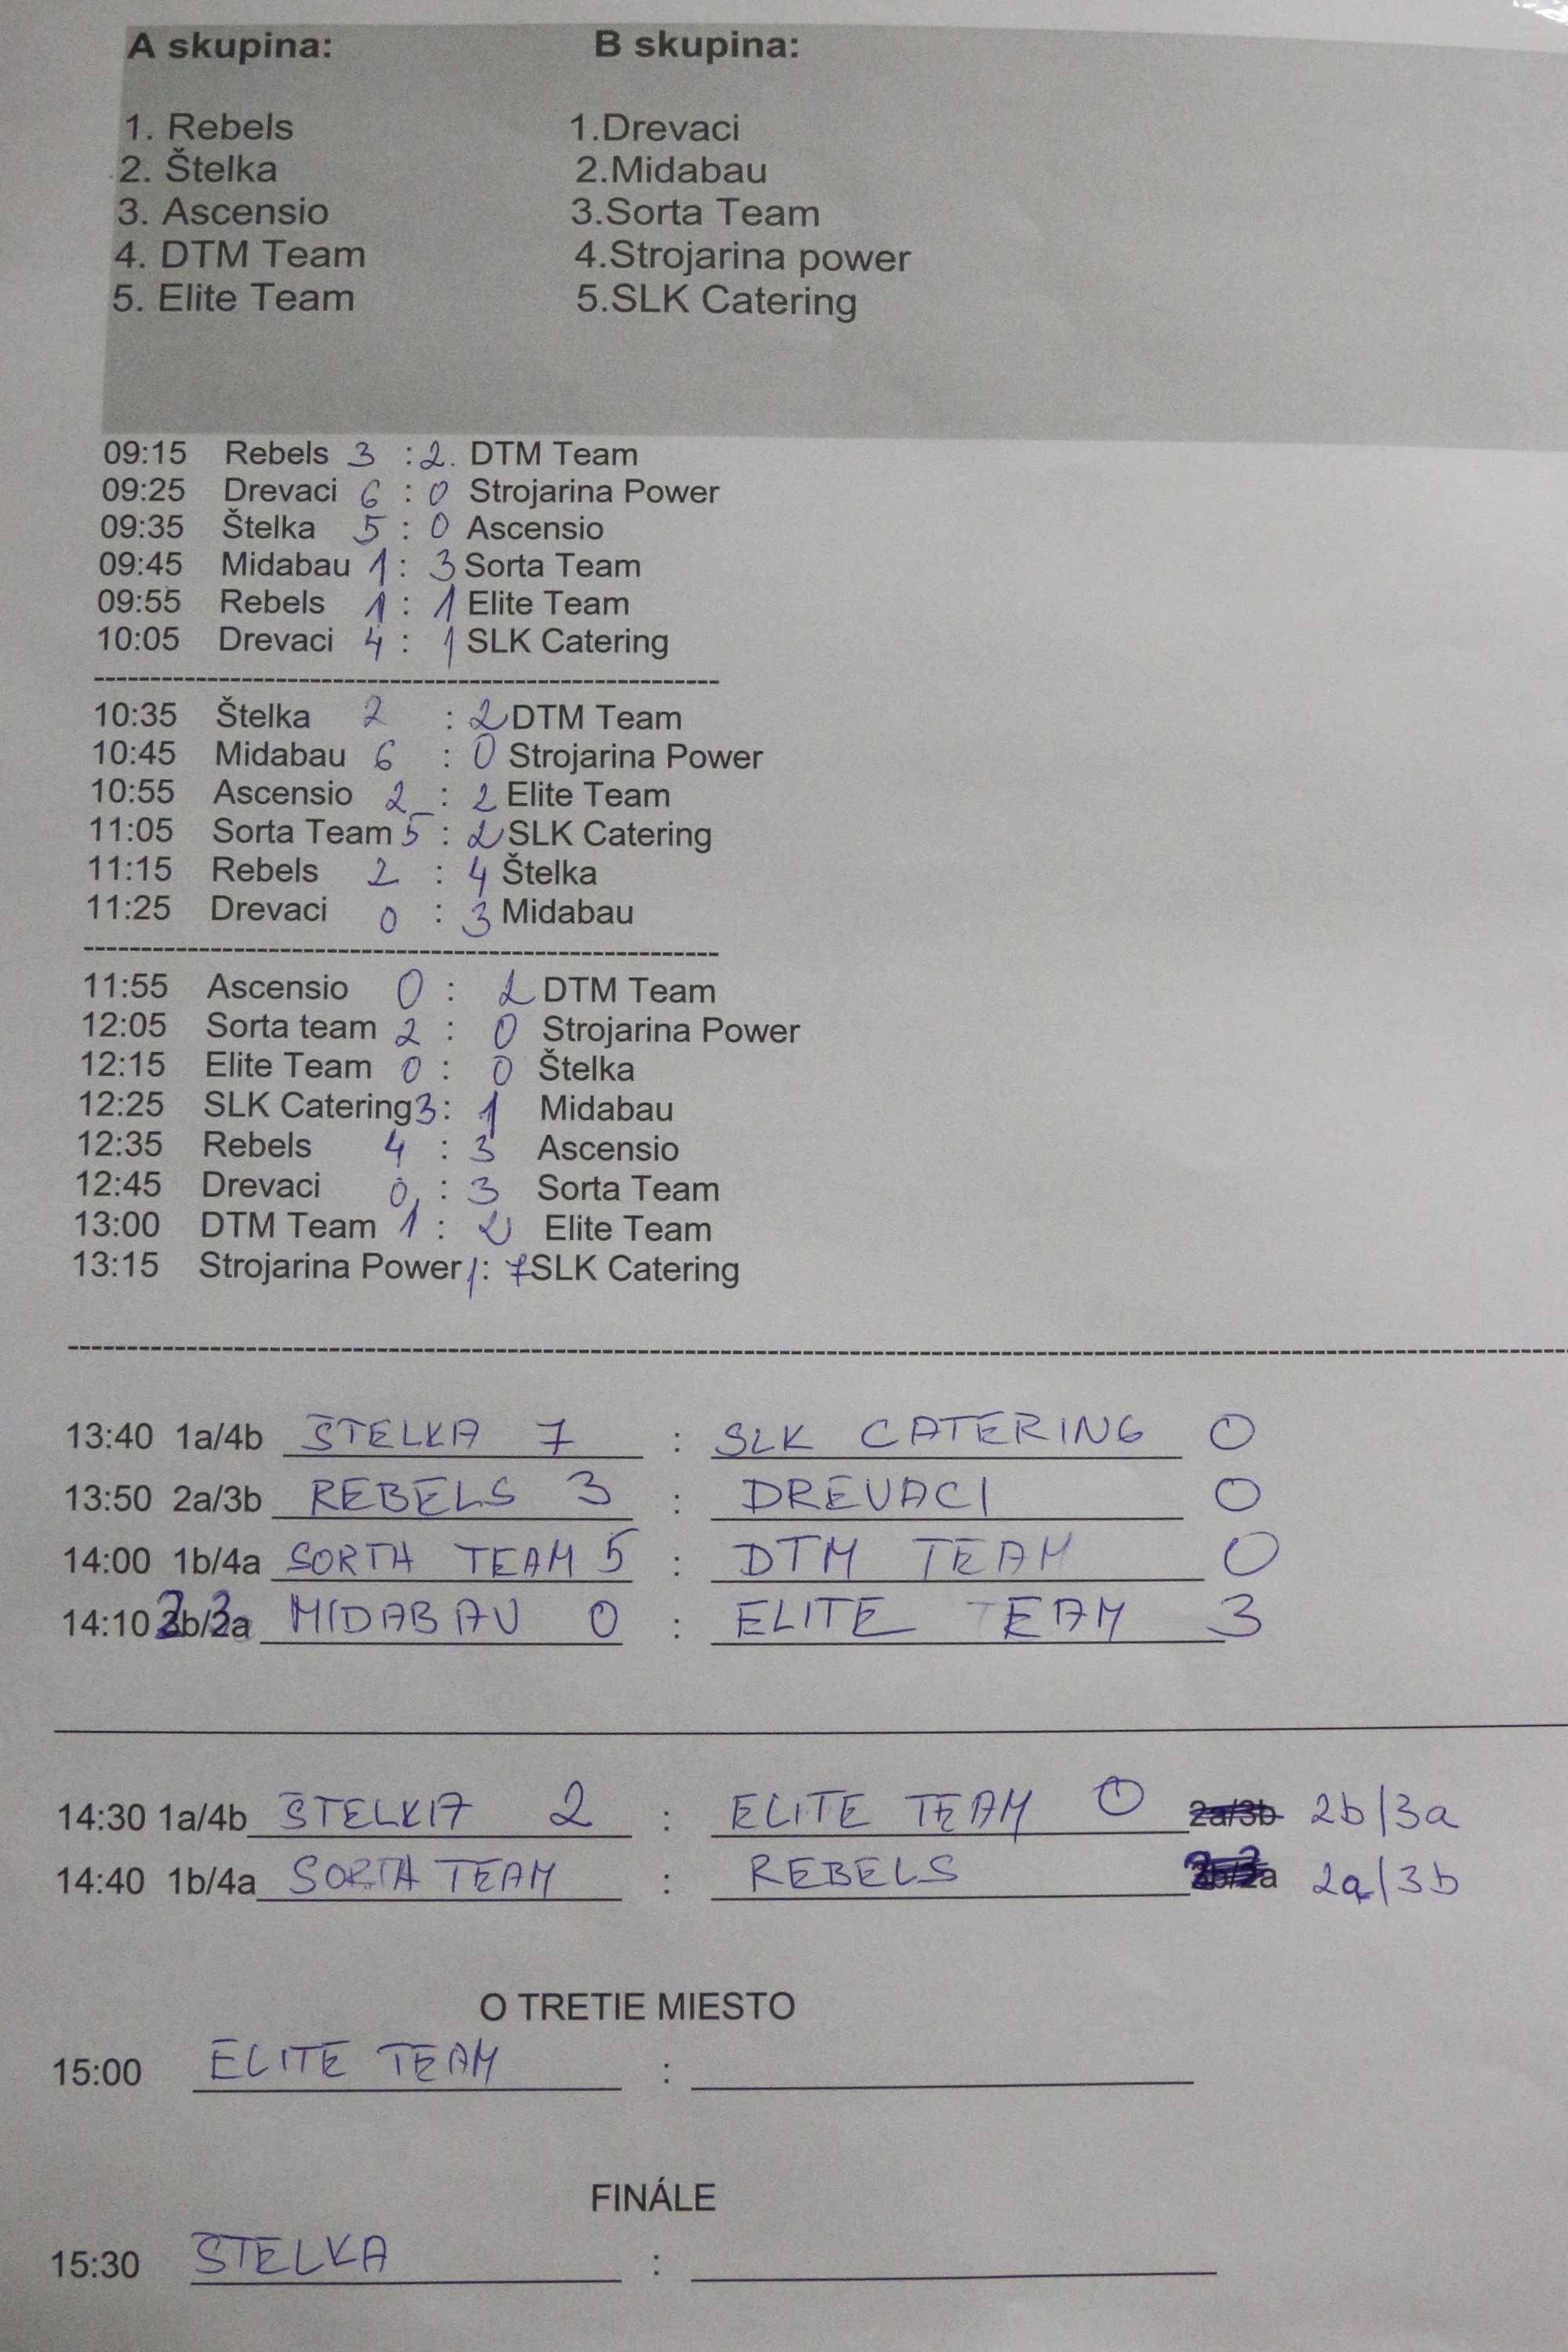 A skupina: B skupina:
1. Rebels 1.Drevaci
2. Štelka 2.Midabau
3. Ascensio 3.Sorta Team
4. DTM Team 4.Strojarina power
5. Elite Team 5.SLK Catering
09:15 Rebels 3 : 2. DTM Team
09:25 Drevaci 6 : 0 Strojarina Power
09:35 Štelka 5 : 0 Ascensio
09:45 Midabau 1 : 3 Sorta Team
09:55 Rebels 1 : 1 Elite Team
10:05 Drevaci 4 : 1 SLK Catering
10:35 Štelka 2 : 2 DTM Team
10:45 Midabau 6 : 0 Strojarina Power
10:55 Ascensio 2 : 2 Elite Team
11:05 Sorta Team 5 : 2 SLK Catering
11:15 Rebels 2 : 4 Štelka
11:25 Drevaci 0 : 3 Midabau
11:55 Ascensio 0 : 2 DTM Team
12:05 Sorta team 2 : 0 Strojarina Power
12:15 Elite Team 0 : 0 Štelka
12:25 SLK Catering 3 : 1 Midabau
12:35 Rebels 4 : 3 Ascensio
12:45 Drevaci 0 : 3 Sorta Team
13:00 DTM Team 1 : 2 Elite Team
13:15 Strojarina Power 1 : 7 SLK Catering
13:40 1a/4b ŠTELKA 7 : SLK CATERING 0
13:50 2a/3b REBELS 3 : DREVACI 0
14:00 1b/4a SORTA TEAM 5 : DTM TEAM 0
14:10 2b/3a MIDABAU 0 : ELITE TEAM 3
14:30 1a/4b ŠTELKA 2 : ELITE TEAM 0 2a/3b 2b/3a
14:40 1b/4a SORTA TEAM : REBELS 2a/3b
O TRETIE MIESTO
15:00 ELITE TEAM :
FINÁLE
15:30 ŠTELKA :